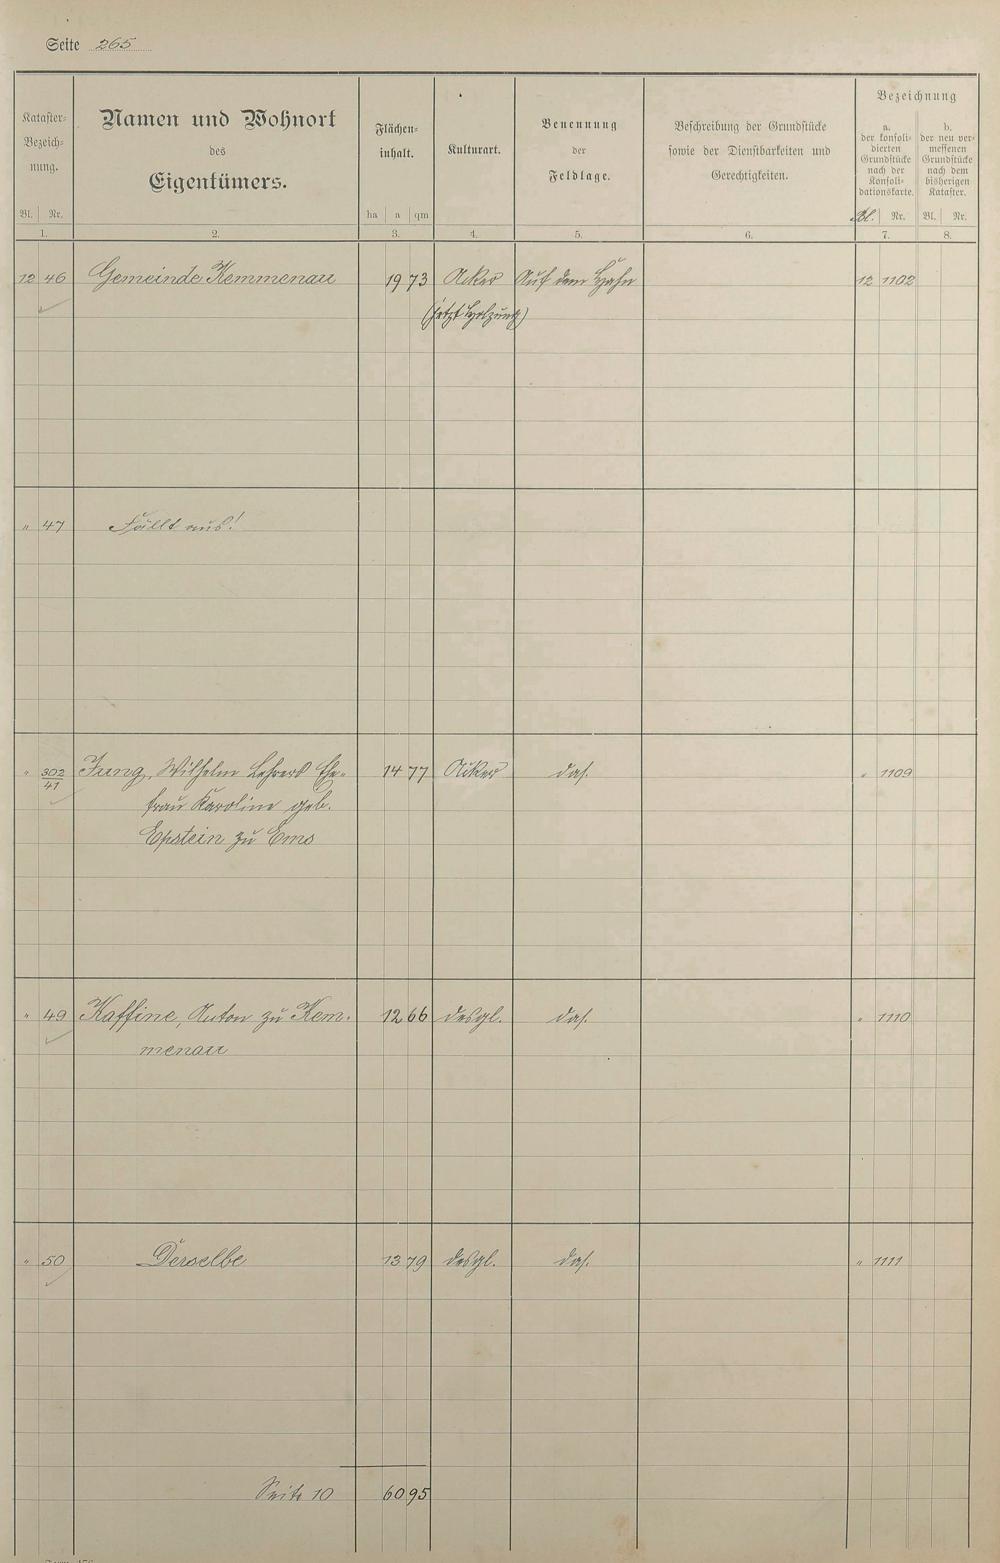 Seite 265
Kataster-Bezeichnung. Namen und Wohnort des Eigentümers. Flächeninhalt. Kulturart. Benennung der Feldlage. Beschreibung der Grundstücke sowie der Dienstbarkeiten und Gerechtigkeiten. Bezeichnung
a. der konsolidierten Grundstücke nach der Konsolidationskarte. b. der neu vermessenen Grundstücke nach dem bisherigen Kataster.
Bl. Nr. ha a qm Bl. Nr. Bl. Nr.
1. 2. 3. 4. 5. 6. 7. 8.
12 46 Gemeinde Kemmenau 19 73 Acker Auf dem Hahn 12 1102
(jetzt Holzung)
" 47 Fällt aus!
" 302/41 Jung, Wilhelm Lehrers Ehe- 14 77 Acker das. " 1109
frau Karoline geb.
Epstein zu Ems
" 49 Kaffine, Anton zu Kem- 12 66 desgl. das. " 1110
menau
" 50 Derselbe 13 79 desgl. das. " 1111
Seite 10 60 95